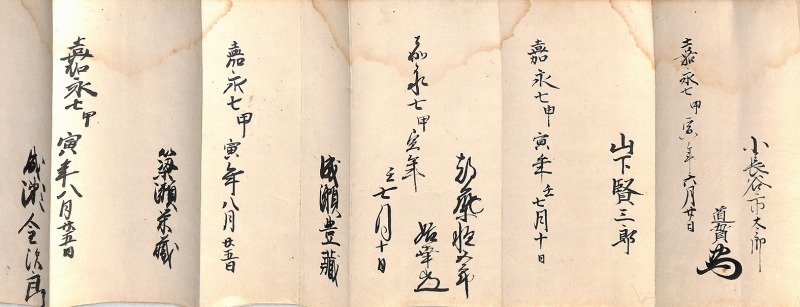 小長谷市太郎
道賀
嘉永七甲寅年六月廿日
山下賢三郎
嘉永七甲寅年七月十日
嘉永七甲寅年
七月十日
成瀬豊蔵
嘉永七甲寅年八月廿五日
簗瀬栄蔵
嘉永七甲寅年八月廿五日
成瀬金次郎